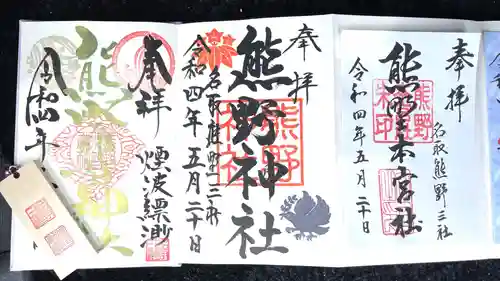 奉拝
熊野本宮社
名取熊野三社
令和四年五月二十日
奉拝
熊野神社
熊野神社
名取熊野三社
令和四年五月二十日
奉拝
煙波縹渺
熊野神社
令和四年